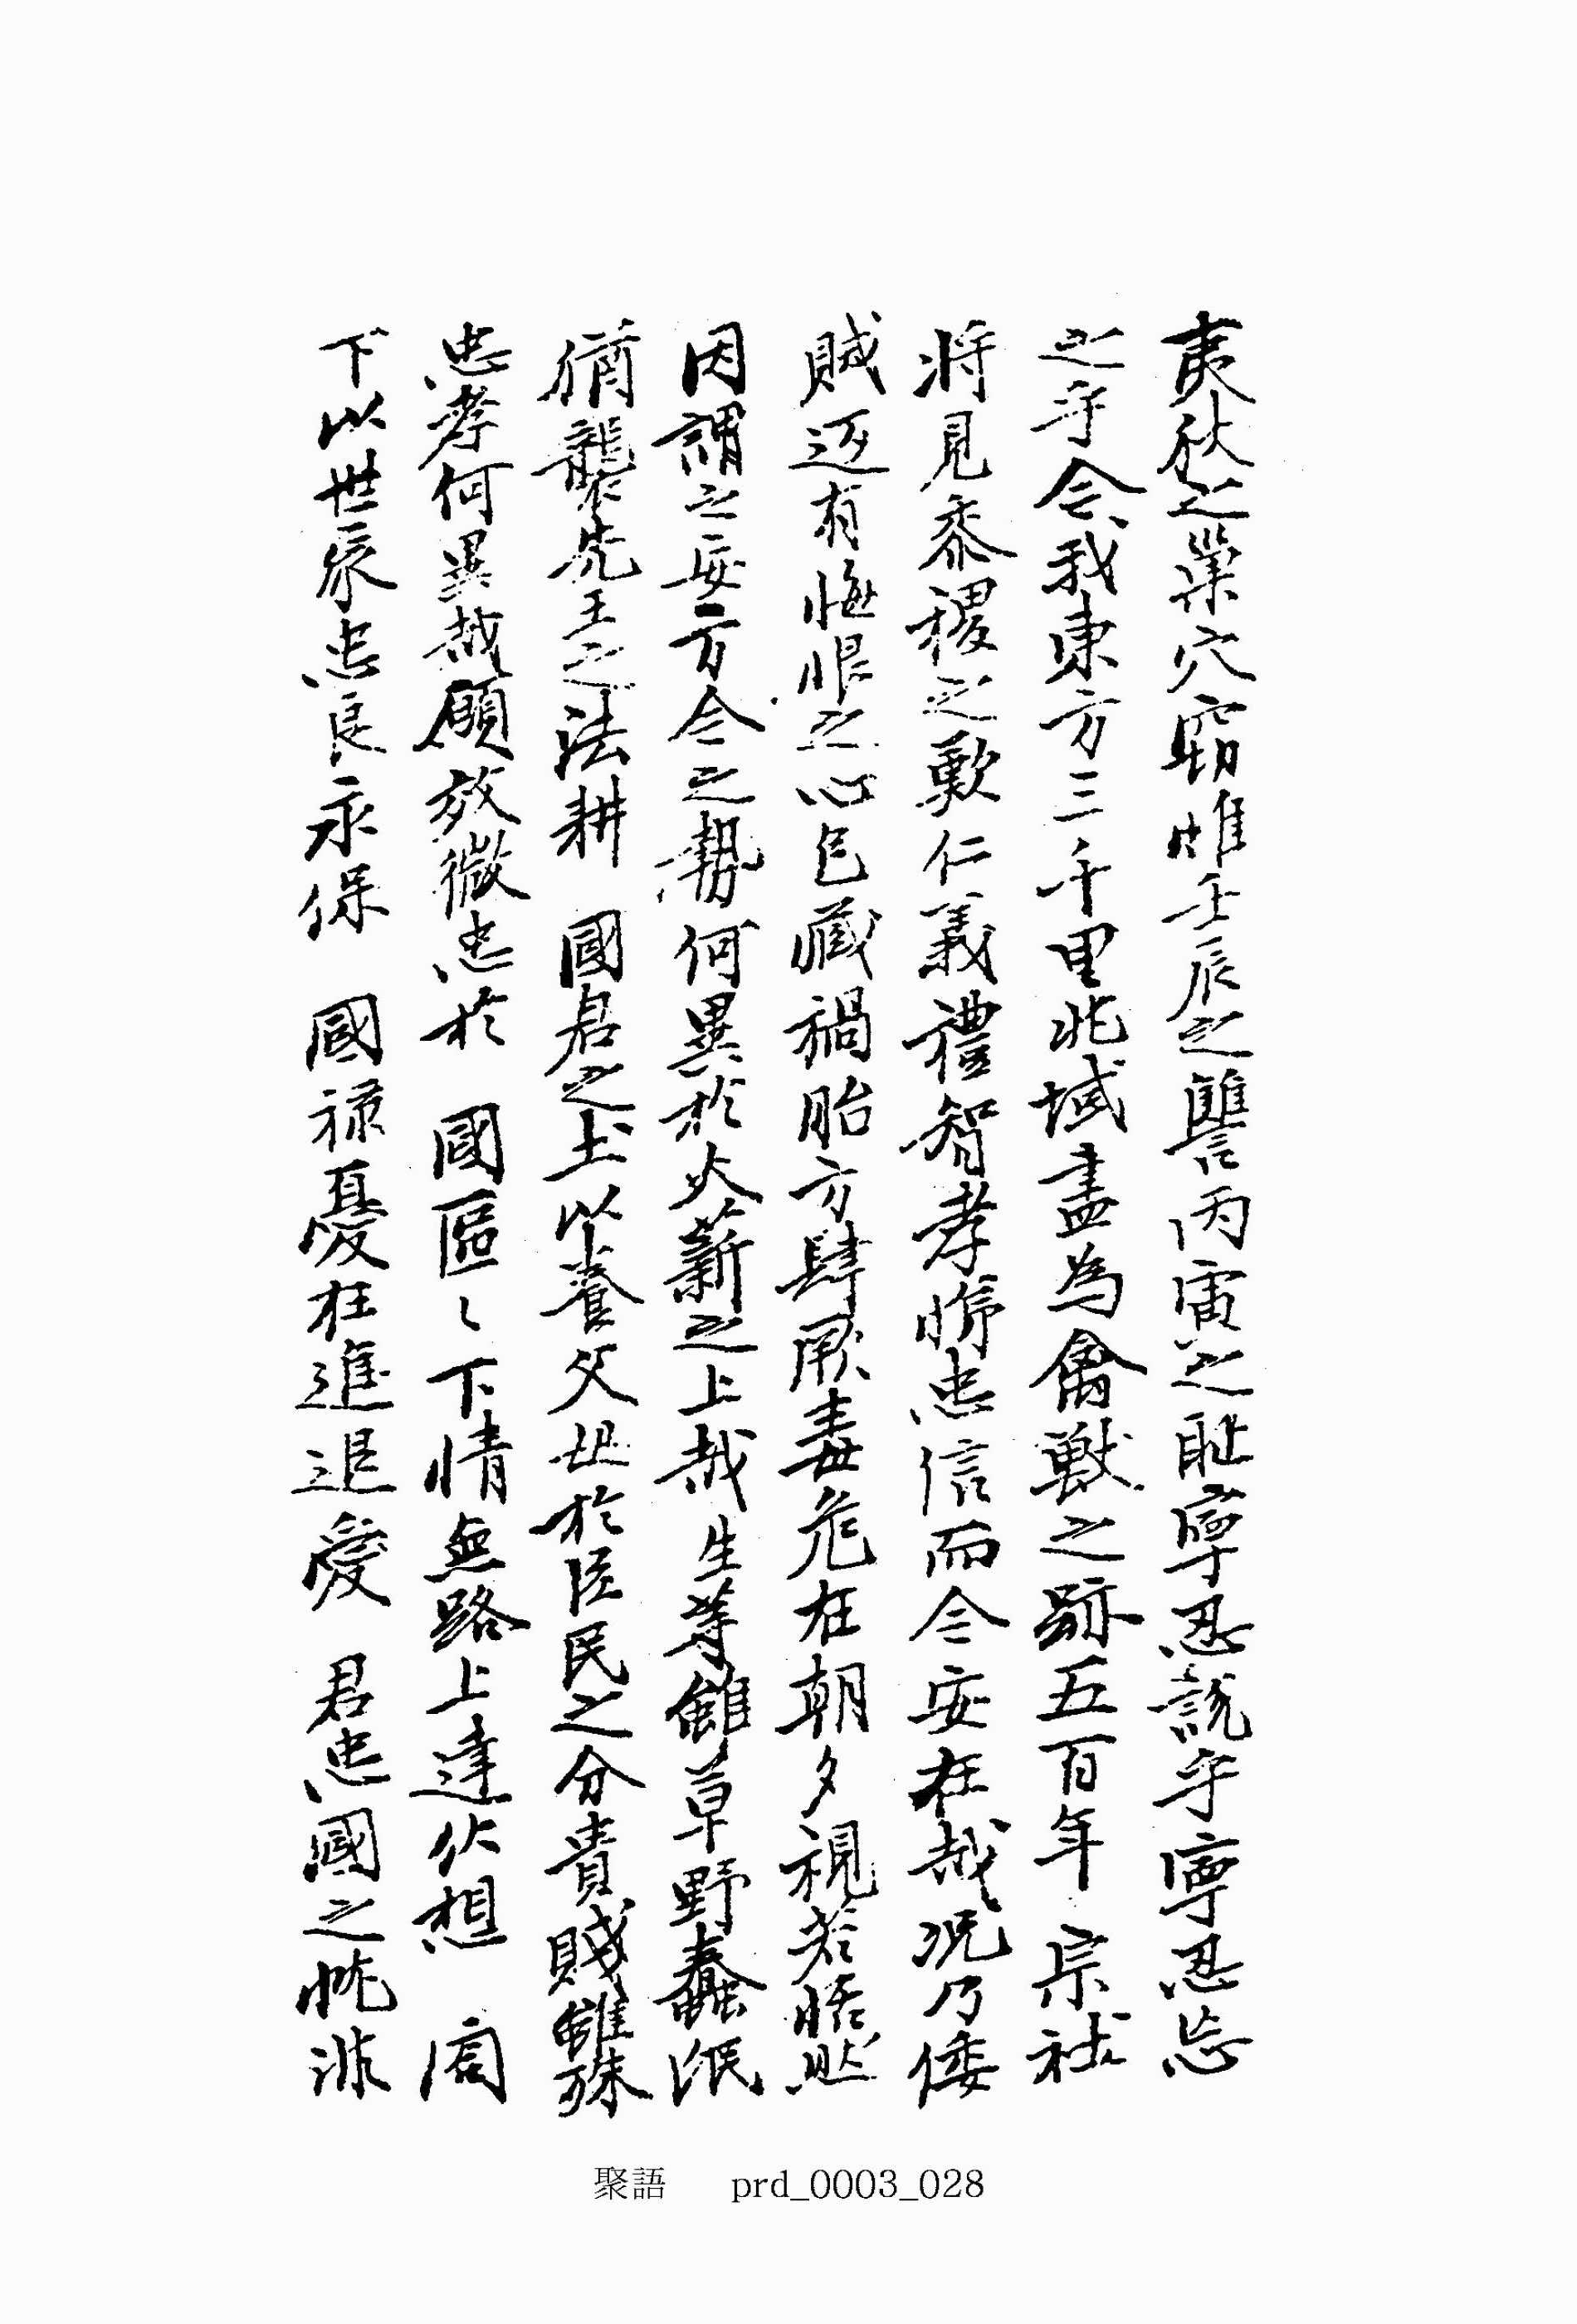 夷狄之巢穴竊惟壬辰之讐丙寅之耻寧忍說乎寧忍忘
之乎今我東方三千里兆域盡爲禽獸之跡五百年 宗社
將見黍稷之歎仁義禮智孝悌忠信而今安在哉况乃倭
賊返有悔恨之心包藏禍胎方肆厥毒危在朝夕視若恬然
因謂之妥方今之勢何異於火薪之上哉生等雖草野蠢氓
猶襲先王之法耕 國君之土以養父母於臣民之分貴賤雖殊
忠孝何異哉願效微忠於 國區〻下情無路上達伏想 閤
下以世家忠良永保 國祿憂在進退愛 君忠國之忱非
聚語 prd_0003_028